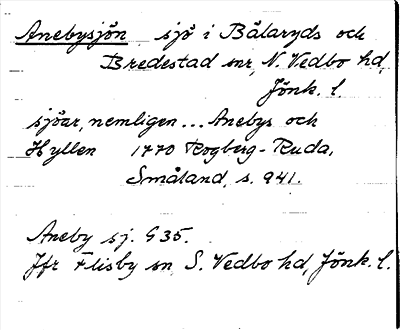 Anebysjön sjö i Bälaryds och
Bredestad snr, N. Vedbo hd,
Jönk. l.
sjöar, nemligen... Anebys och
Hyllen 1770 Rogberg-Ruda,
Småland, s. 941.
Aneby sj. G35.
Jfr Flisby sn, S. Vedbo hd, Jönk. l.